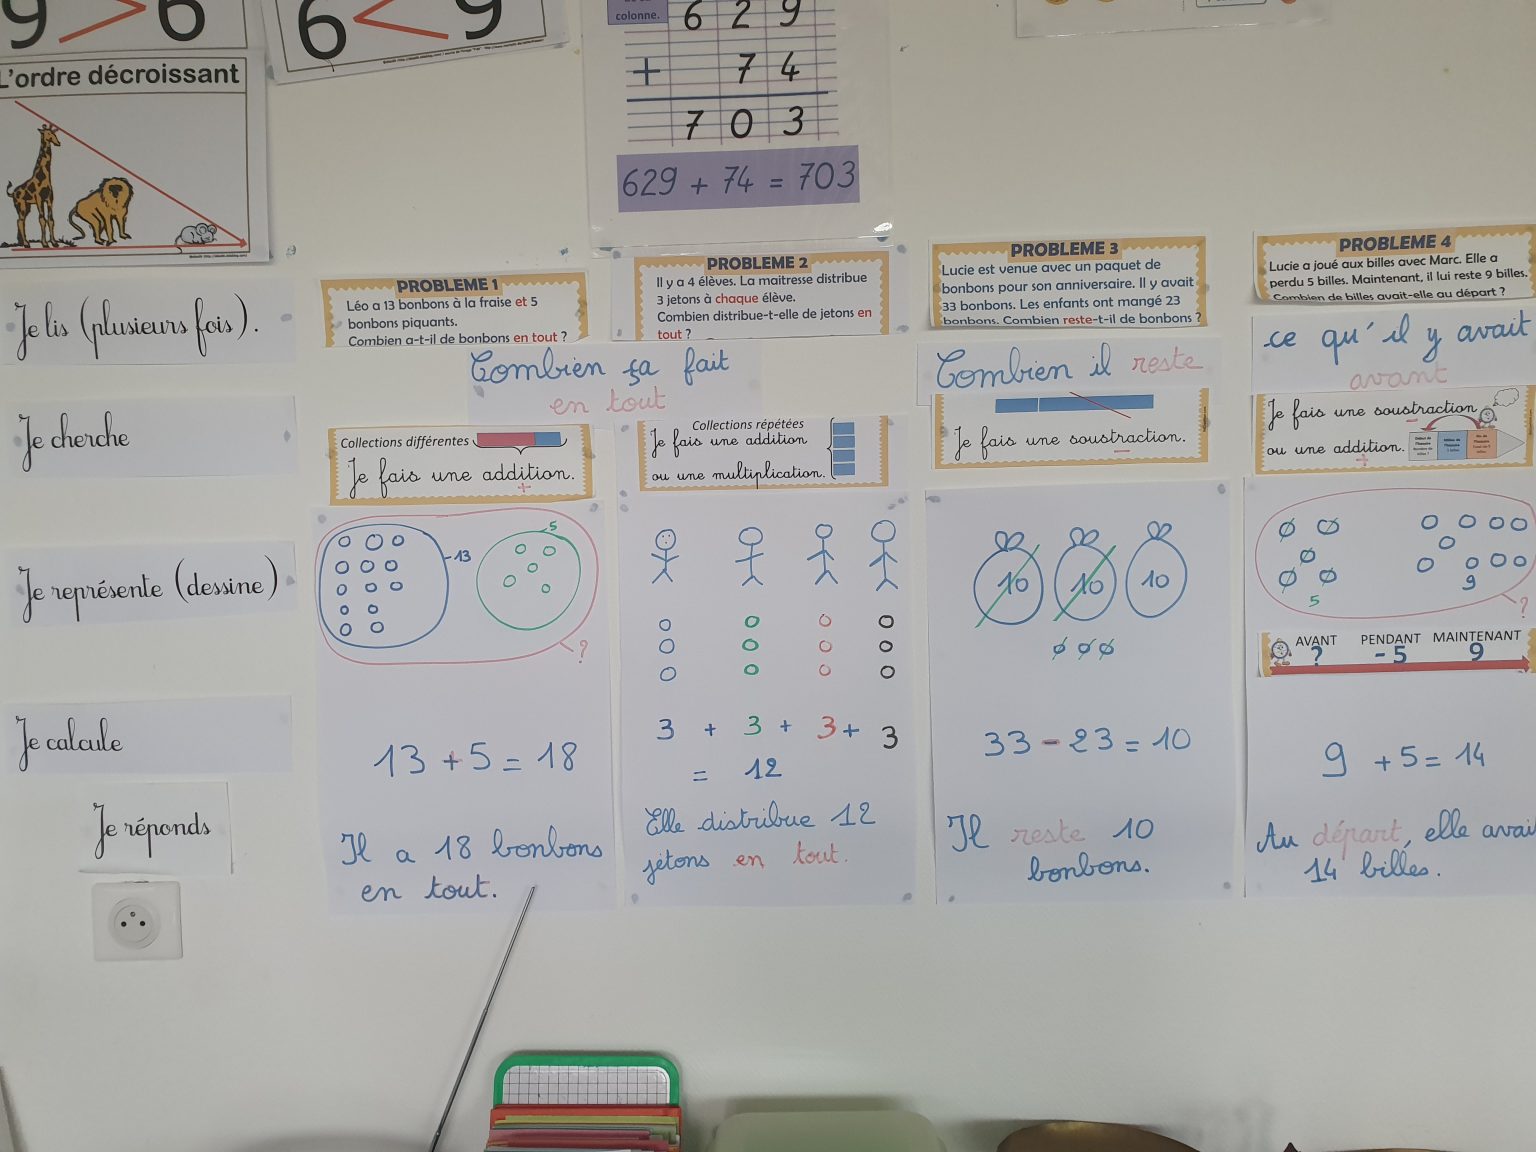 9 > 6
6 < 9
L'ordre décroissant
colonne.
6 2 9
+ 7 4
7 0 3
629 + 74 = 703
Je lis (plusieurs fois).
Je cherche
Je représente (dessine)
Je calcule
Je réponds
PROBLEME 1
Léo a 13 bonbons à la fraise et 5
bonbons piquants.
Combien a-t-il de bonbons en tout ?
PROBLEME 2
Il y a 4 élèves. La maitresse distribue
3 jetons à chaque élève.
Combien distribue-t-elle de jetons en
tout ?
Combien ça fait
en tout
Collections différentes
Je fais une addition.
+
13
5
?
13 + 5 = 18
Il a 18 bonbons
en tout.
Collections répétées
Je fais une addition
ou une multiplication.
3 + 3 + 3 + 3
= 12
Elle distribue 12
jetons en tout.
PROBLEME 3
Lucie est venue avec un paquet de
bonbons pour son anniversaire. Il y avait
33 bonbons. Les enfants ont mangé 23
bonbons. Combien reste-t-il de bonbons ?
Combien il reste
Je fais une soustraction.
−
10 10 10
33 - 23 = 10
Il reste 10
bonbons.
PROBLEME 4
Lucie a joué aux billes avec Marc. Elle a
perdu 5 billes. Maintenant, il lui reste 9 billes.
Combien de billes avait-elle au départ ?
ce qu'il y avait
avant
Je fais une soustraction
−
ou une addition.
+
5
9
?
AVANT PENDANT MAINTENANT
? -5 9
9 + 5 = 14
Au départ, elle avait
14 billes.